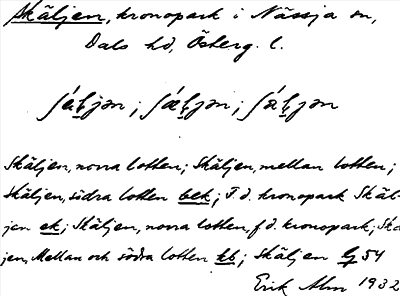 Skäljen, kronopark i Nässja sn,
Dals hd, Österg. l.
Skäljen, norra lotten; Skäljen, mellan lotten;
Skäljen, södra lotten bek; F.d. kronopark Skäl-
jen ek; Skäljen, norra lotten, f.d. kronopark; Skä
jen, Mellan och södra lotten kb; Skäljen 54
Erik Alm 1932